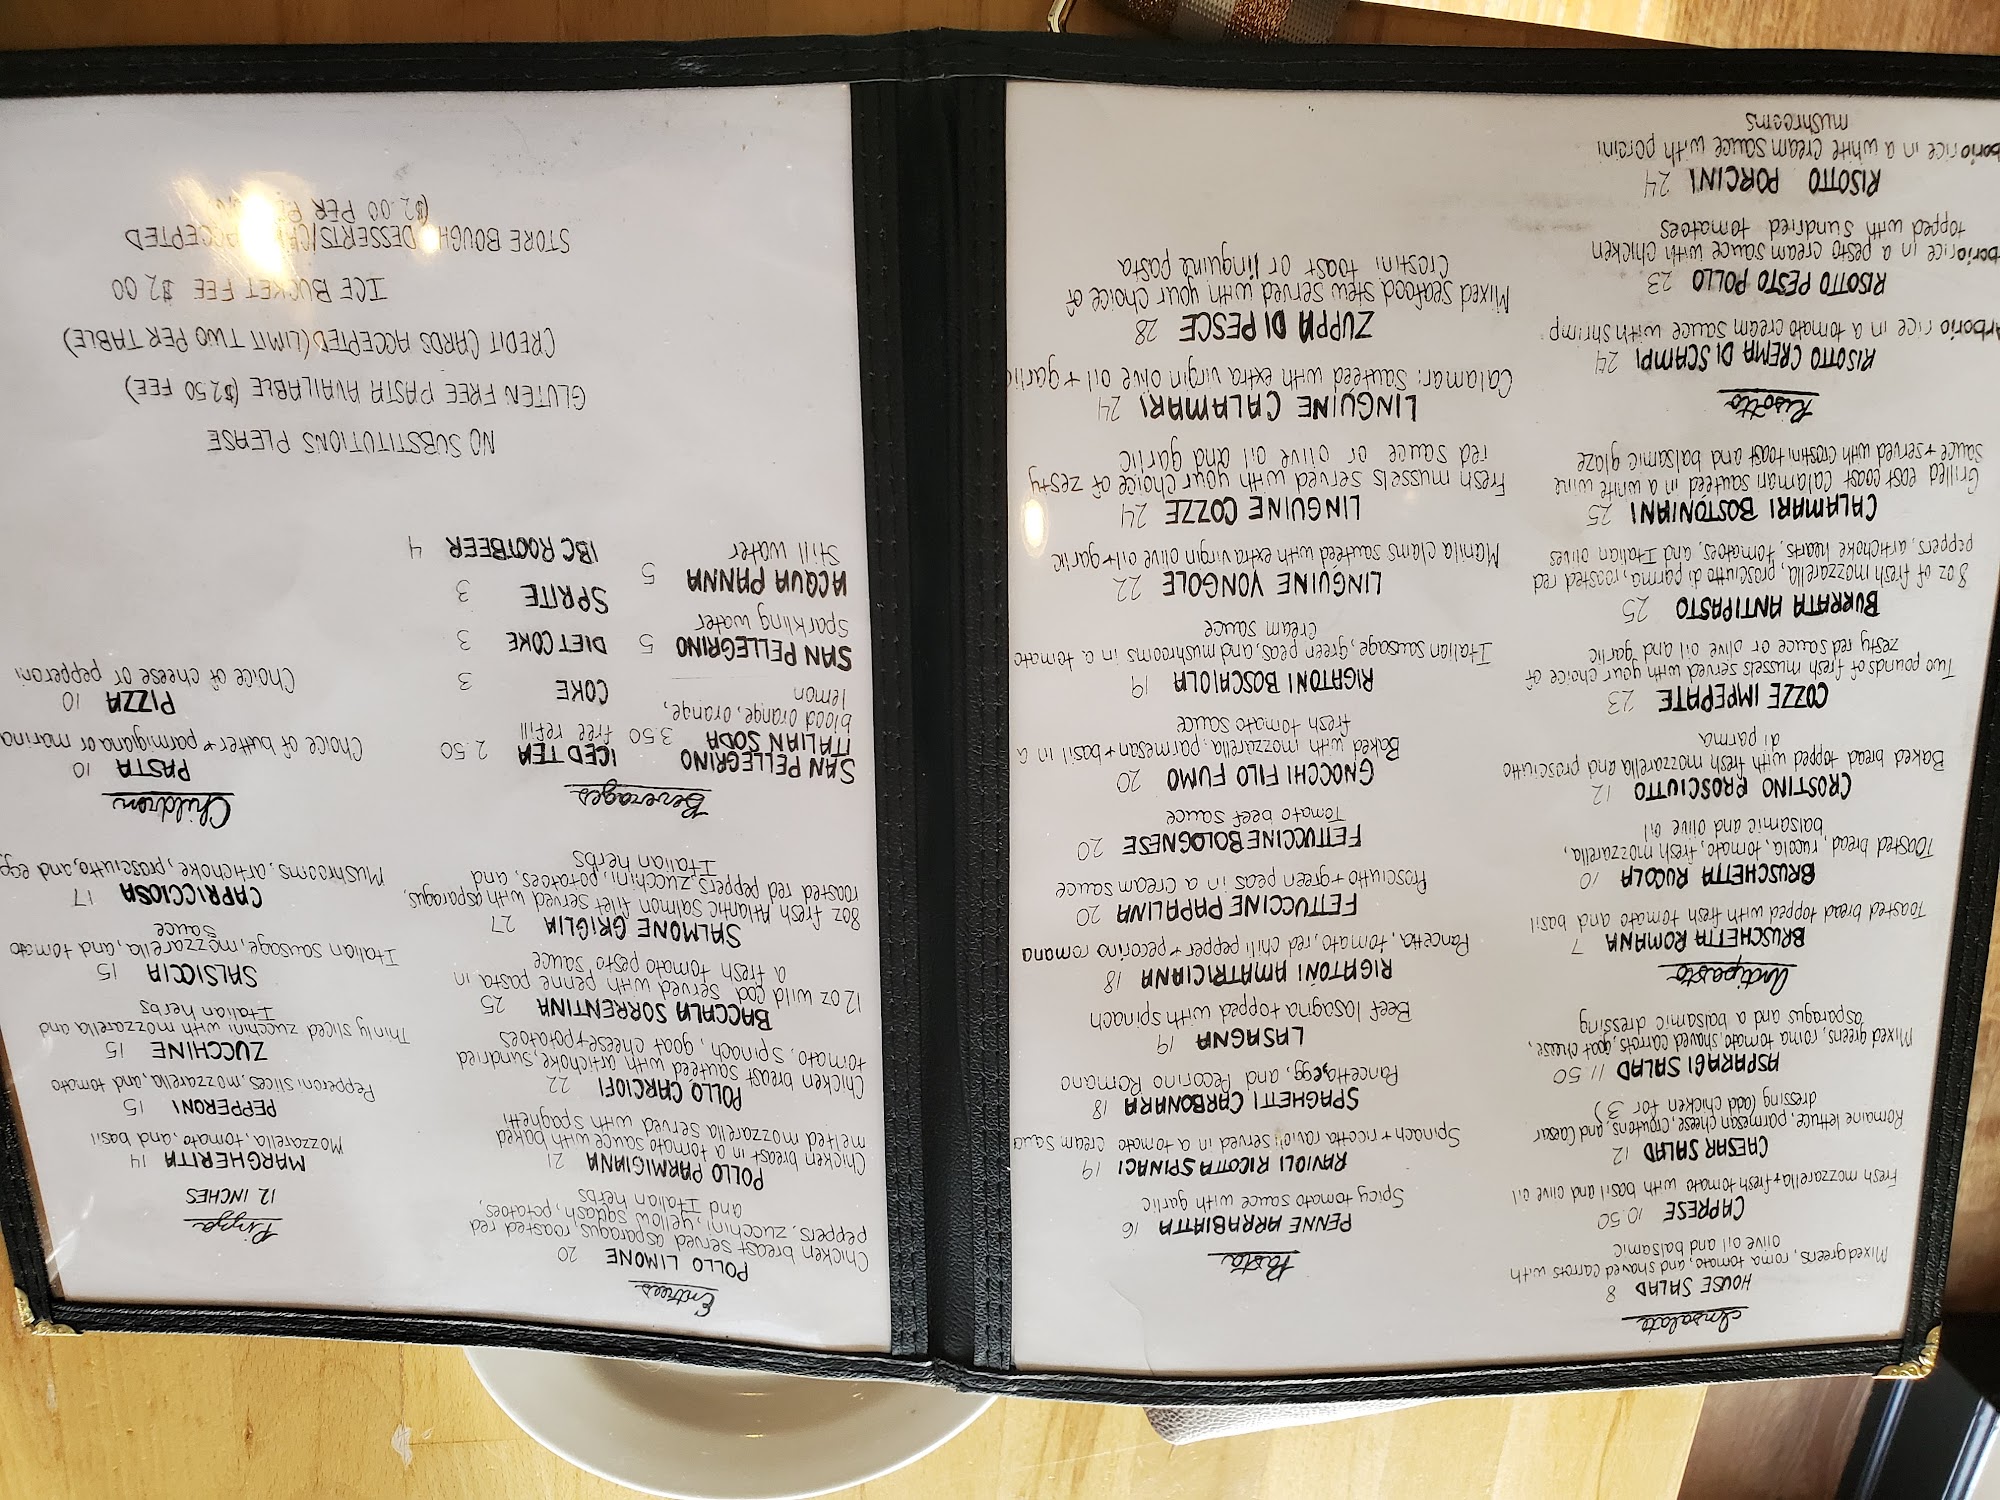 Insalate
HOUSE SALAD 8
Mixed greens, roma tomato, and shaved carrots with
olive oil and balsamic
CAPRESE 10.50
Fresh mozzarella + fresh tomato with basil and olive oil
CAESAR SALAD 12
Romaine lettuce, parmesan cheese, croutons, and Caesar
dressing (add chicken for 3)
ASPARAGI SALAD 11.50
Mixed greens, roma tomato, shaved carrots, goat cheese,
asparagus and a balsamic dressing
Antipasto
BRUSCHETTA ROMANA 7
Toasted bread topped with fresh tomato and basil
BRUSCHETTA RUCOLA 10
Toasted bread, ruccla, tomato, fresh mozzarella,
balsamic and olive oil
CROSTINO PROSCIUTTO 12
Baked bread topped with fresh mozzarella and prosciutto
di parma
COZZE IMPEPATE 23
Two pounds of fresh mussels served with your choice of
zesty red sauce or olive oil and garlic
BURRATA ANTIPASTO 25
8oz of fresh mozzarella, prosciutto di parma, roasted red
peppers, artichoke hearts, tomatoes, and Italian olives
CALAMARI BOSTONIANI 25
Grilled east coast calamari sauteed in a white wine
sauce + served with crostini toast and balsamic glaze
Risotto
RISOTTO CREMA DI SCAMPI 24
Arborio rice in a tomato cream sauce with shrimp
RISOTTO PESTO POLLO 23
borio rice in a pesto cream sauce with chicken
topped with sundried tomatoes
RISOTTO PORCINI 24
borio rice in a white cream sauce with porcini
mushrooms
Pasta
PENNE ARRABIATTA 16
Spicy tomato sauce with garlic
RAVIOLI RICOTTA SPINACI 19
Spinach + ricotta ravioli served in a tomato cream sauc
SPAGHETTI CARBONARA 18
Pancetta, egg, and Pecorino Romano
LASAGNA 19
Beef lasagna topped with spinach
RIGATONI AMATRICIANA 18
Pancetta, tomato, red chili pepper + pecorino romana
FETTUCCINE PAPALINA 20
Prosciutto + green peas in a cream sauce
FETTUCCINE BOLOGNESE 20
Tomato beef sauce
GNOCCHI FILO FUMO 20
Baked with mozzarella, parmesan + basil in a
fresh tomato sauce
RIGATONI BOSCAIOLA 19
Italian sausage, green peas, and mushrooms in a tomato
cream sauce
LINGUINE VONGOLE 22
Manila clams sauteed with extra virgin olive oil + garlic
LINGUINE COZZE 24
Fresh mussels served with your choice of zesty
red sauce or olive oil and garlic
LINGUINE CALAMARI 24
Calamari sauteed with extra virgin olive oil + garlic
ZUPPA DI PESCE 28
Mixed seafood stew served with your choice of
Crostini toast or linguine pasta
Entrees
POLLO LIMONE 20
Chicken breast served asparagus roasted red
peppers, zucchini, yellow squash, potatoes,
and Italian herbs
POLLO PARMIGIANA 21
Chicken breast in a tomato sauce with baked
melted mozzarella served with spaghetti
POLLO CARCIOFI 22
Chicken breast sauteed with artichoke, sundried
tomato, spinach, goat cheese + potatoes
BACCALA SORRENTINA 25
12 oz wild cod served with penne pasta in
a fresh tomato pesto sauce
SALMONE GRIGLIA 27
8oz fresh Atlantic Salmon filet served with asparagus,
roasted red peppers, zucchini, potatoes, and
Italian herbs
Beverages
SAN PELLEGRINO
ITALIAN SODA 3.50
blood orange, orange,
lemon
SAN PELLEGRINO 5
Sparkling water
ACQUA PANNA 5
Still water
ICED TEA 2.50
free refill
COKE 3
DIET COKE 3
SPRITE 3
IBC ROOTBEER 4
Pizza
12 INCHES
MARGHERITA 14
Mozzarella, tomato, and basil
PEPPERONI 15
Pepperoni slices, mozzarella, and tomato
ZUCCHINE 15
Thinly sliced zucchini with mozzarella and
Italian herbs
SALSICCIA 15
Italian sausage, mozzarella, and tomato
sauce
CAPRICCIOSA 17
Mushrooms, artichoke, prosciutto, and egg
Children
PASTA 10
Choice of butter + parmigiana or marina
PIZZA 10
Choice of cheese or pepperoni
NO SUBSTITUTIONS PLEASE
GLUTEN FREE PASTA AVAILABLE ($2.50 FEE)
CREDIT CARDS ACCEPTED (LIMIT TWO PER TABLE)
ICE BUCKET FEE $2.00
STORE BOUGHT DESSERTS ACCEPTED
($2.00 PER